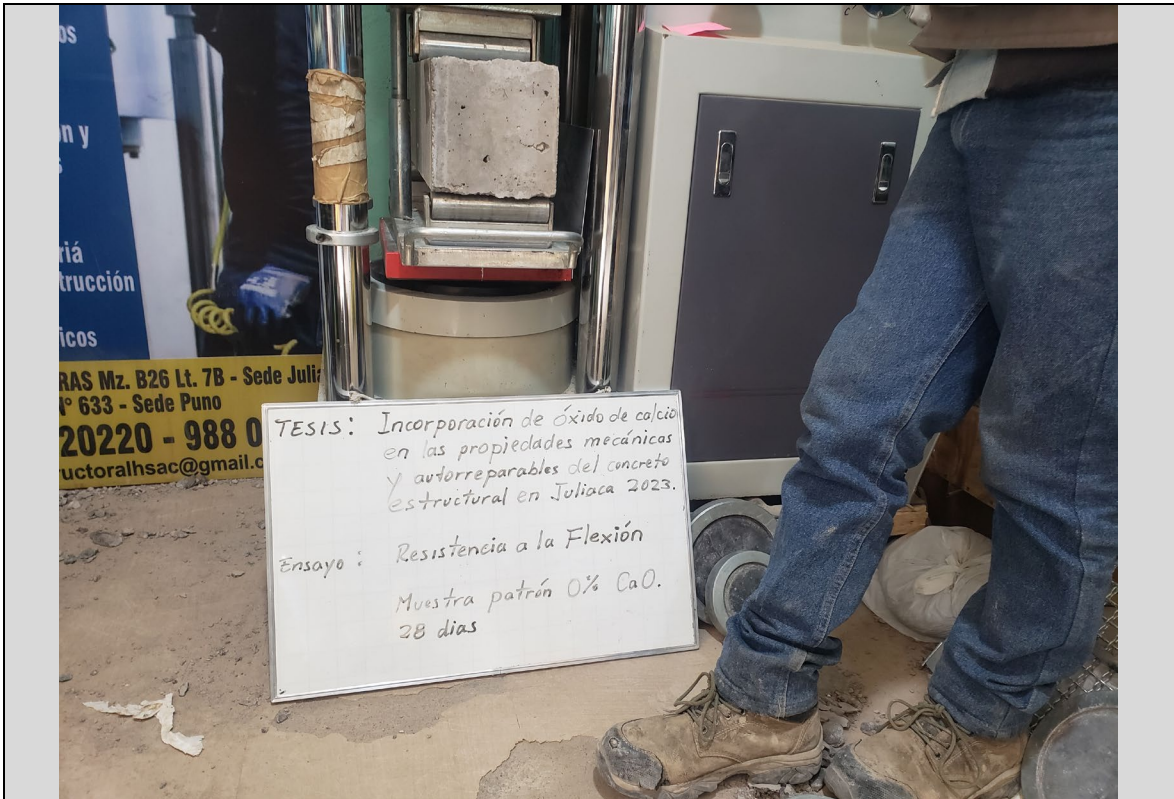 os
ón y
s
riá
trucción
icos
RAS Mz. B26 Lt. 7B - Sede Julia
N° 633 - Sede Puno
20220 - 988 0
uctoralhsac@gmail.c
TESIS: Incorporación de óxido de calcio
en las propiedades mecánicas
y autorreparables del concreto
estructural en Juliaca 2023.
Ensayo: Resistencia a la Flexión
Muestra patrón 0% CaO.
28 dias